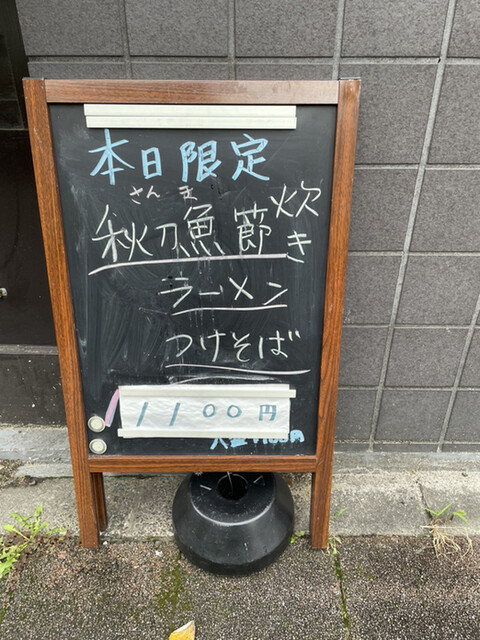 本日限定
さんま
秋刀魚節炊き
ラーメン
つけそば
1100円